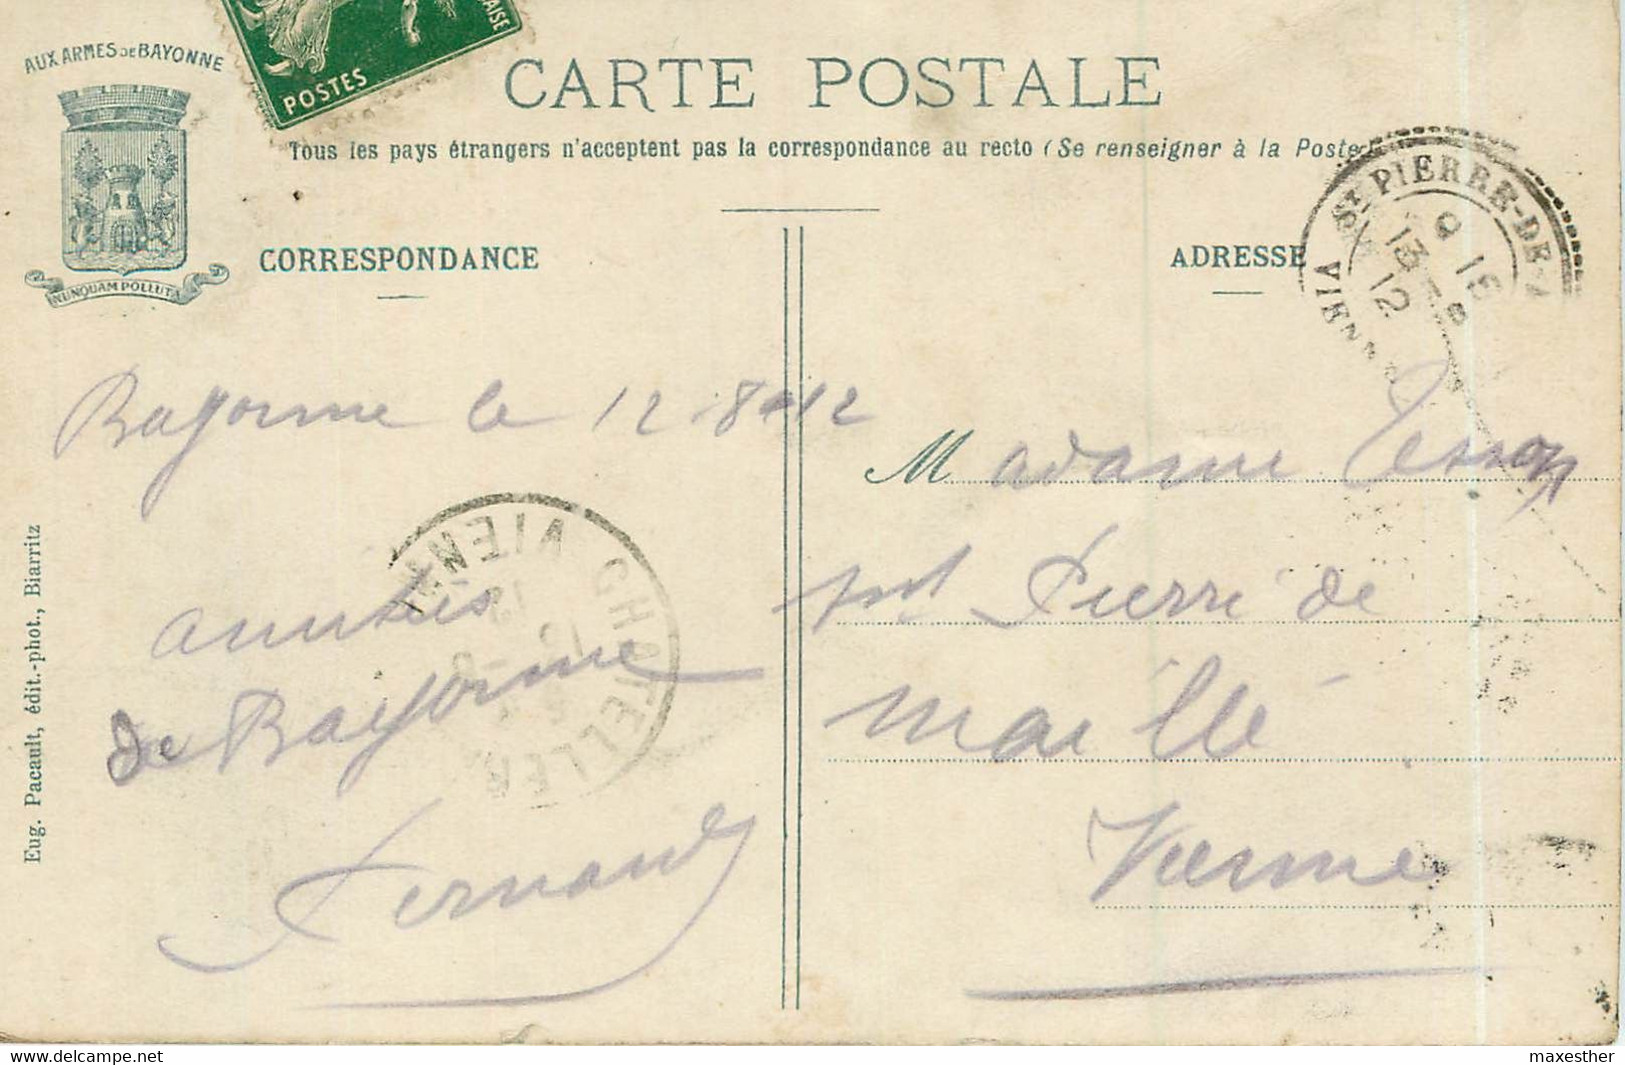 AUX ARMES DE BAYONNE
POSTES
CARTE POSTALE
Tous les pays étrangers n'acceptent pas la correspondance au recto (Se renseigner à la Poste)
NUNQUAM POLLUTA
CORRESPONDANCE
ADRESSE
St PIERRE-DE-
VIENNE
13
12
Bayonne le 12-8-12
amitiés
de Bayonne
Fernand
Madame
St Pierre de
maillé
Vienne
CHATELLER
VIENNE
Eug. Pacault, édit.-phot., Biarritz
delcampe.net
maxesther